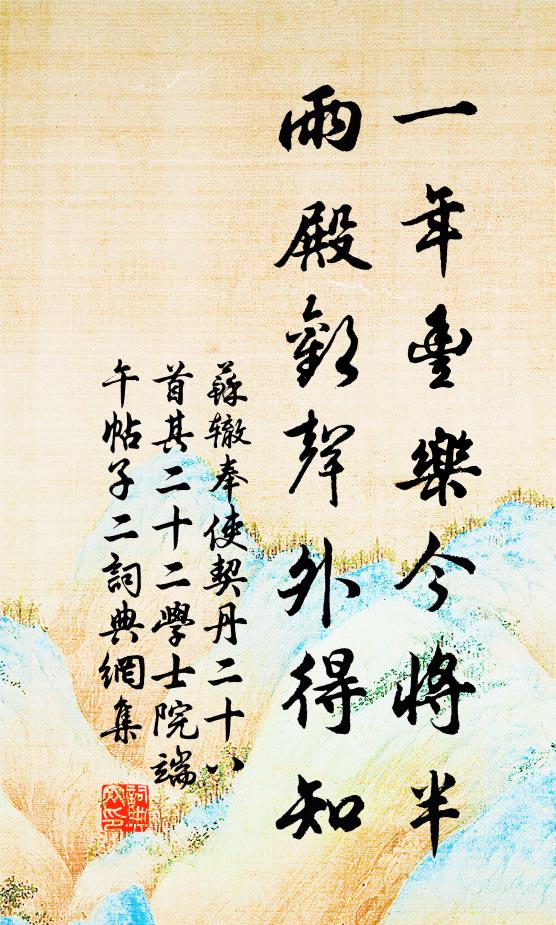 一年豊樂今將半
兩殿歡聲外得知
蘇轍奉使契丹二十八
首其二十二學士院端
午帖子二詞典網集